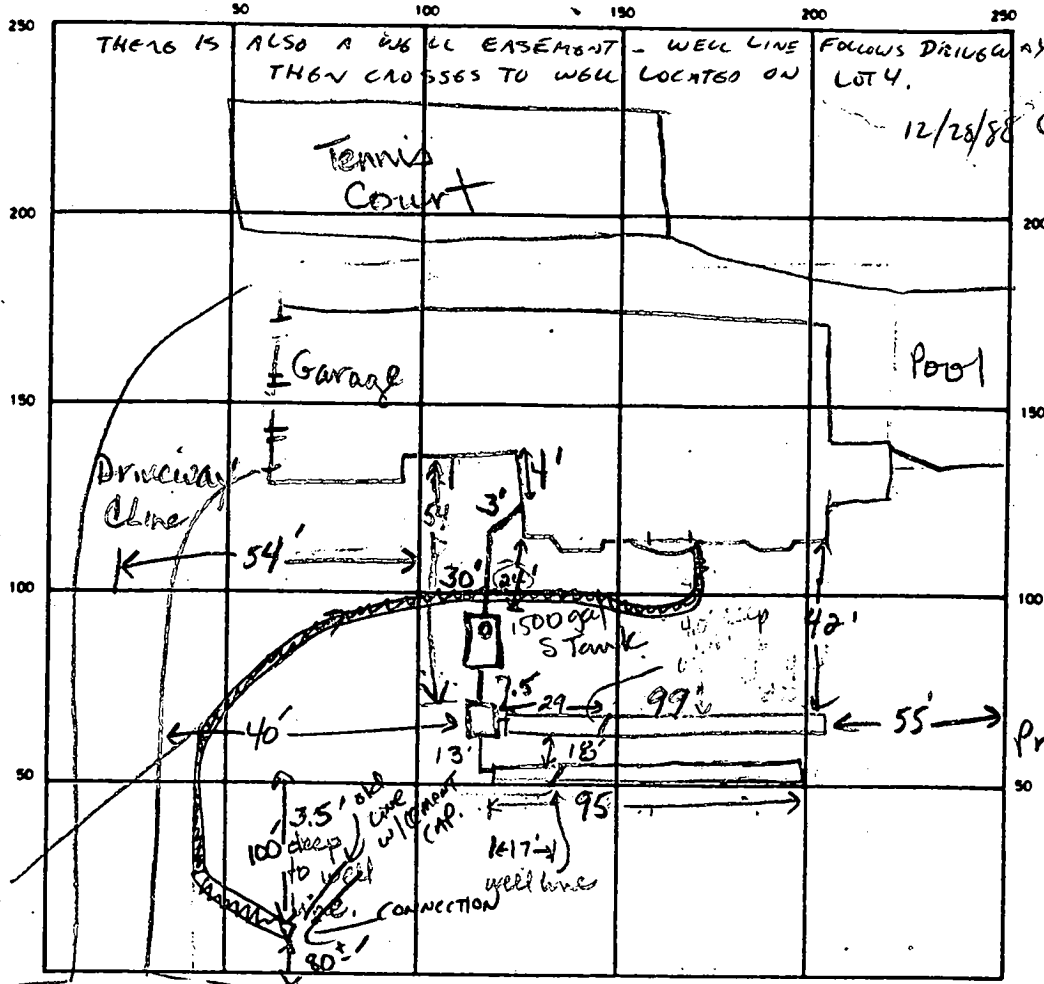 50 100 150 200 250
250
THERE IS ALSO A WELL EASEMENT - WELL LINE FOLLOWS DRIVEWAY
THEN CROSSES TO WELL LOCATED ON LOT 4.
12/28/88
Tennis
Court
200 200
Garage
Pool
150 150
Driveway
CLine
4'
3'
54'
54'
30'
24'
100 100
1500 gal
S Tank
42'
.5
29
99'
55'
40'
13'
18'
Pr
50 50
95
3.5' old
line
w/cement
cap.
100'
deep
to well
line.
17'
well line
CONNECTION
80±'